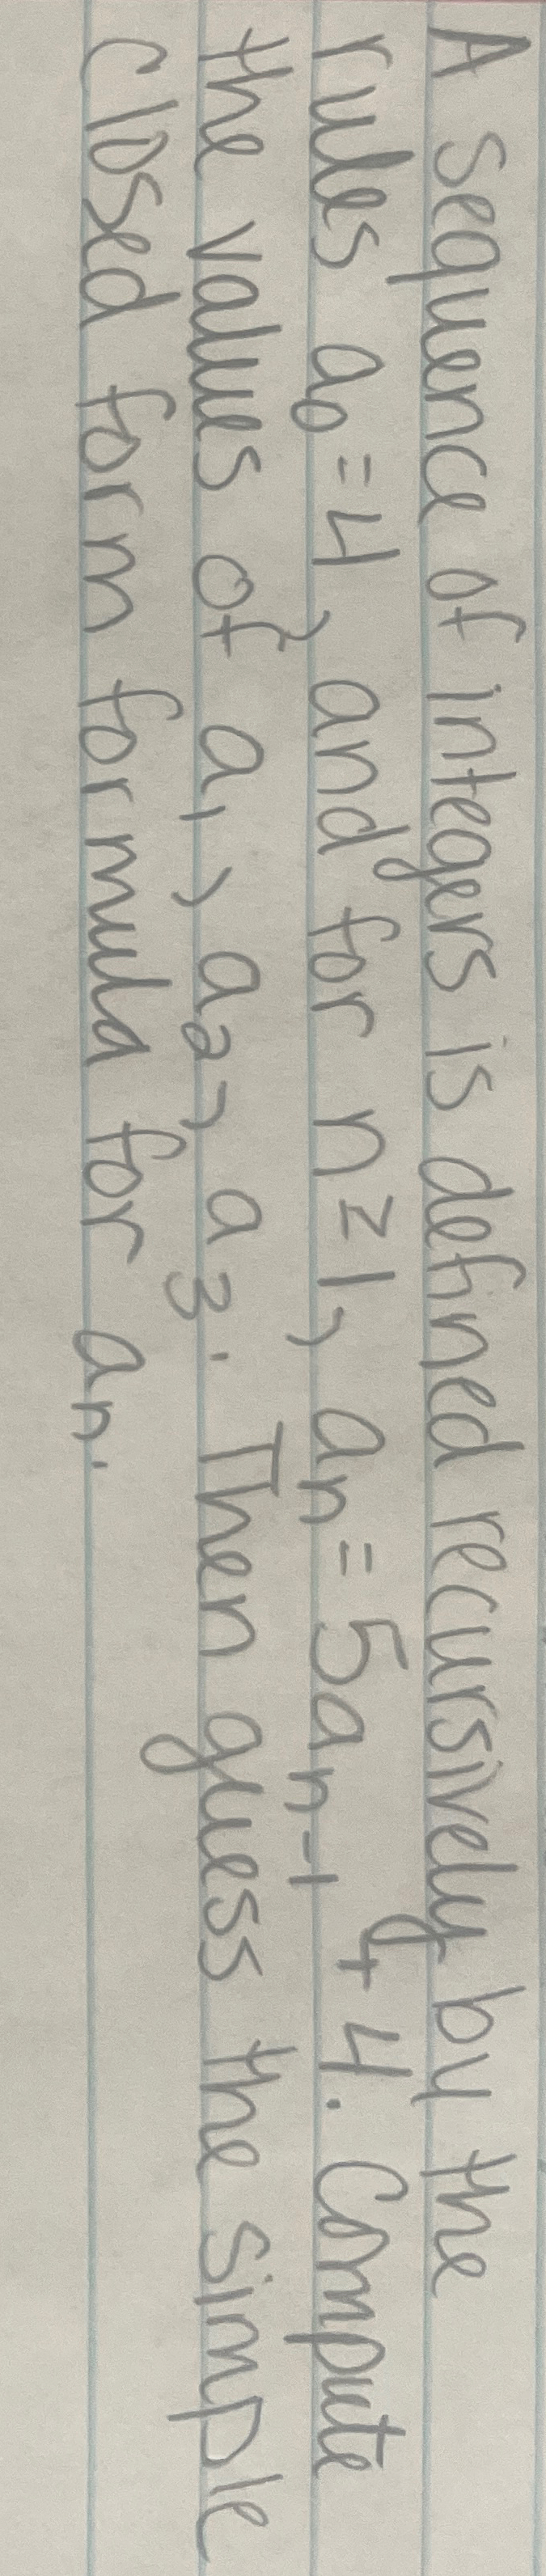 A sequence of integers is defined recursively by the
rules a₀ = 4, and for n ≥ 1, aₙ = 5aₙ₋₁ + 4. Compute
the values of a₁, a₂, a₃. Then guess the simple
closed form formula for aₙ.